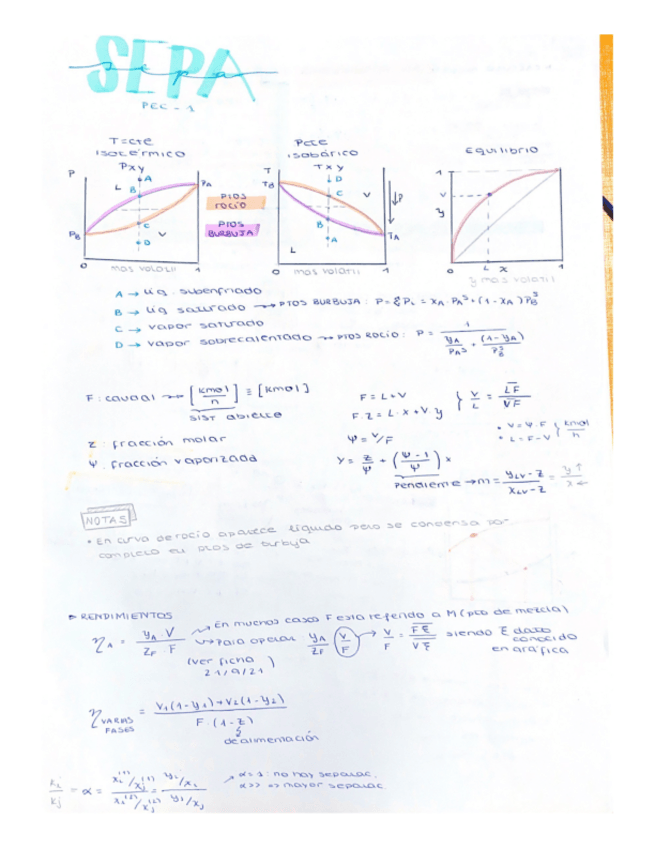 SEPA
sepa
PEC - 1
T=cte
isotérmico
Pxy
P
A
B
L
PA
C
V
D
PB
0
mas volatil
1
PTOS
ROCÍO
PTOS
BURBUJA
Pcte
isobárico
Txy
T
TB
D
C
V
B
A
L
TA
↓P
0
mas volatil
1
Equilibrio
1
V
y
0
L
x
1
mas volatil
A → Líq. subenfriado
B → Líq saturado → PTOS BURBUJA : P = ΣPi = xA · PAˢ + (1 - xA) PBˢ
C → vapor saturado
D → vapor sobrecalentado → PTOS ROCÍO : P = 1 / (yA/PAˢ + (1-yA)/PBˢ)
F : caudal → [kmol/h] ≡ [kmol]
SIST abierto
z : fracción molar
Ψ : fracción vaporizada
F = L + V
F · z = L · x + V y
} V/L = LF/VF
Ψ = V/F
• V = Ψ · F
• L = F - V
} kmol/h
y = z/Ψ + ((Ψ - 1)/Ψ) x
Pendiente → m = (yLV - z)/(xLV - z) = y↑/x←
NOTAS
• En curva de rocío aparece líquido pero se condensa por
completo en ptos de burbuja
► RENDIMIENTOS
ηA = yA · V / zF · F
→ En muchos casos F esta referido a M (pto de mezcla)
→ Para operar yA/zF (V/F) → V/F = Fξ/Vξ siendo ξ dato
conocido
en gráfica
(ver ficha
21/9/21)
η VARIAS FASES = V1(1-y1)+V2(1-y2) / F · (1-z)
de alimentación
Ki/Kj = α = xi⁽¹⁾/xj⁽¹⁾ / xi⁽²⁾/xj⁽²⁾ = yi/xi / yj/xj
α=1 : no hay separac.
α>> => mayor separac